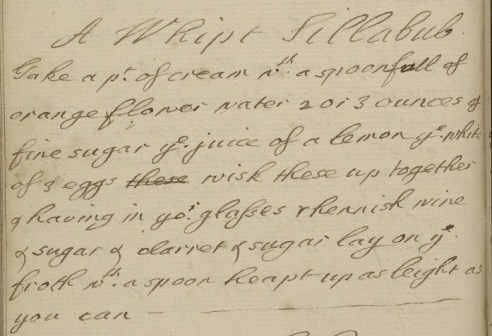 A Whipt Sillabub.
Take a pt. of cream wth. a spoonfull of
orange flower water 2 or 3 ounces of
fine sugar ye. juice of a lemon ye. white
of 3 eggs these wisk these up together
& having in yor. glasses rhennish wine
& sugar & clarret & sugar lay on ye.
froth wth. a spoon heapt up as leight as
you can